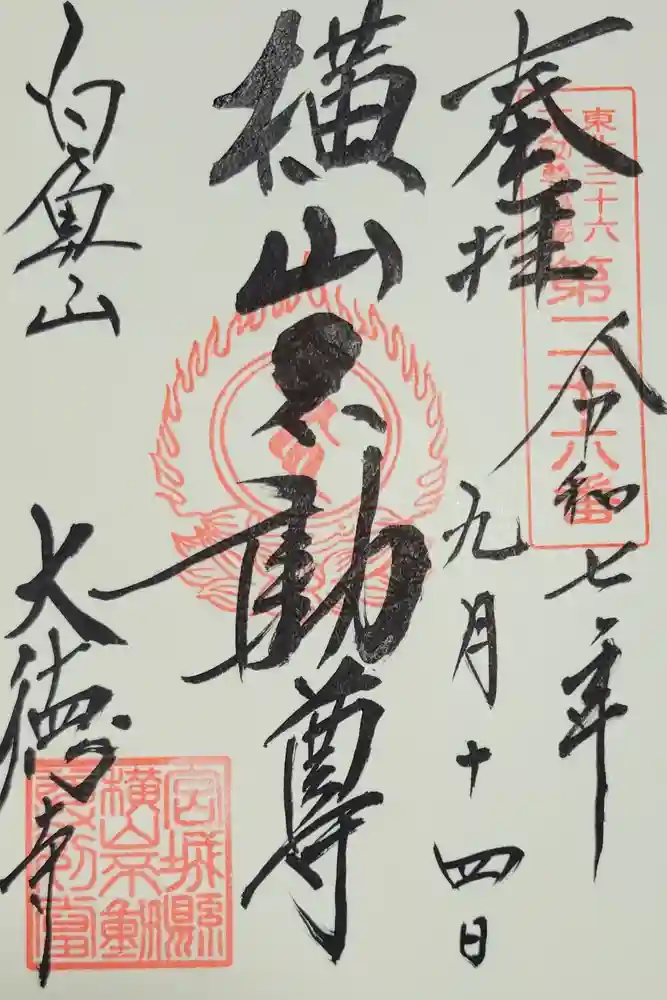 奉拝
東北三十六
不動尊霊場
第二十六番
令和七年
九月十四日
横山不動尊
白魚山
大徳寺
宮城縣
横山不動